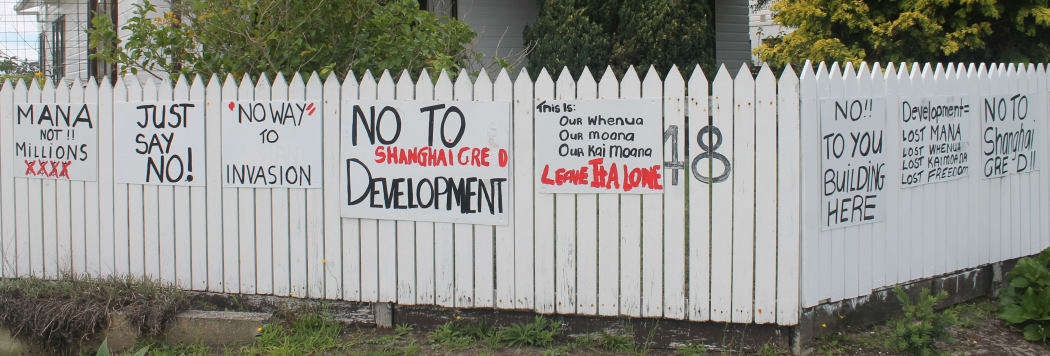 MANA
NOT!!
MILLIONS
XXXX
JUST
SAY
NO!
"NO WAY"
TO
INVASION
NO TO
SHANGHAI CRE D
DEVELOPMENT
This Is:
OUR Whenua
OUR moana
OUR Kai Moana
LEAVE ITALONE
48
NO!!
TO YOU
BUILDING
HERE
Development=
LOST MANA
LOST WHENUA
LOST KAIMOANA
LOST FREEDOM
NO TO
Shanghai
CRE-D!!